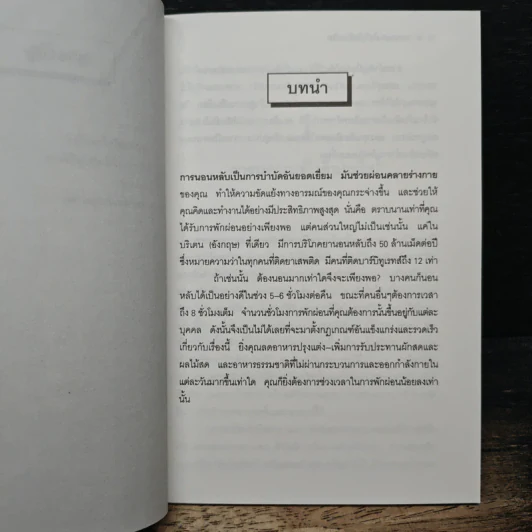 บทนำ
การนอนหลับเป็นการบำบัดอันยอดเยี่ยม มันช่วยผ่อนคลายร่างกาย
ของคุณ ทำให้ความขัดแย้งทางอารมณ์ของคุณกระจ่างขึ้น และช่วยให้
คุณคิดและทำงานได้อย่างมีประสิทธิภาพสูงสุด นั่นคือ ตราบนานเท่าที่คุณ
ได้รับการพักผ่อนอย่างเพียงพอ แต่คนส่วนใหญ่ไม่เป็นเช่นนั้น แค่ใน
บริเตน (อังกฤษ) ที่เดียว มีการบริโภคยานอนหลับถึง 50 ล้านเม็ดต่อปี
ซึ่งหมายความว่าในทุกคนที่ติดยาเสพติด มีคนที่ติดบาร์บิทูเรทส์ถึง 12 เท่า
ถ้าเช่นนั้น ต้องนอนมากเท่าใดจึงจะเพียงพอ? บางคนก็นอน
หลับได้เป็นอย่างดีในช่วง 5-6 ชั่วโมงต่อคืน ขณะที่คนอื่นๆต้องการเวลา
ถึง 8 ชั่วโมงเต็ม จำนวนชั่วโมงการพักผ่อนที่คุณต้องการนั้นขึ้นอยู่กับแต่ละ
บุคคล ดังนั้นจึงเป็นไปไม่ได้เลยที่จะมาตั้งกฎเกณฑ์อันแข็งแกร่งและรวดเร็ว
เกี่ยวกับเรื่องนี้ ยิ่งคุณลดอาหารปรุงแต่ง-เพิ่มการรับประทานผักสดและ
ผลไม้สด และอาหารธรรมชาติที่ไม่ผ่านกระบวนการและออกกำลังกายใน
แต่ละวันมากขึ้นเท่าใด คุณก็ยิ่งต้องการช่วงเวลาในการพักผ่อนน้อยลงเท่า
นั้น